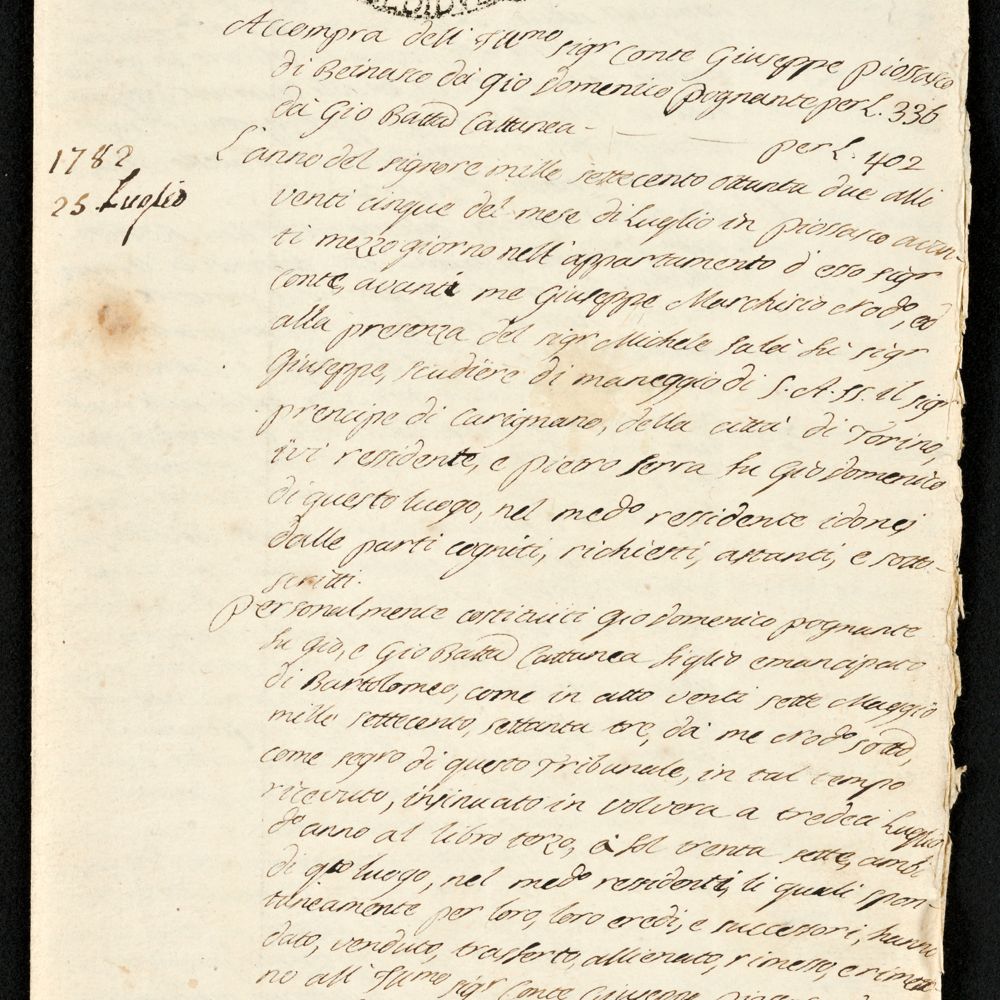 Accompra dell' Illmo sigr Conte Giuseppe Piossasco
di Beinasco da Gio Domenico Pognante per L. 336
da Gio Batta Cattanea - per L. 402
1782
25 Luglio
L'anno del signore mille settecento ottanta due alli
venti cinque del mese di Luglio in Piossasco avan-
ti mezzo giorno nell' appartamento d'esso sigr
Conte, avanti me Giuseppe Marchisio Nodo, ed
alla presenza del sigr Michele fu sigr
Giuseppe, scudiere di maneggio di S. A. SS. il sigr
prencipe di Carignano, della città di Torino,
ivi ressidente, e Pietro Serra fu Gio Domenico
di questo luogo, nel medo ressidente idonei
dalle parti cogniti, richiesti, astanti, e sotto-
scritti.
Personalmente costituiti Gio Domenico Pognante
fu Gio, e Gio Batta Cattanea figlio emancipato
di Bartolomeo, come in atto venti sette Maggio
mille settecento, settanta tre, da me Nodo sotto,
come segro di questo Tribunale, in tal tempo
ricevuto, insinuato in Volvera a tredeci Luglio
do anno al libro terzo, à fol trenta sette, ambi
di qto luogo, nel medo ressidenti, li quali spon-
taneamente per loro, loro eredi, e successori, hanno
dato, venduto, trasferto, allienato, rimesso, e
no all' Illmo sigr Conte Giuseppe